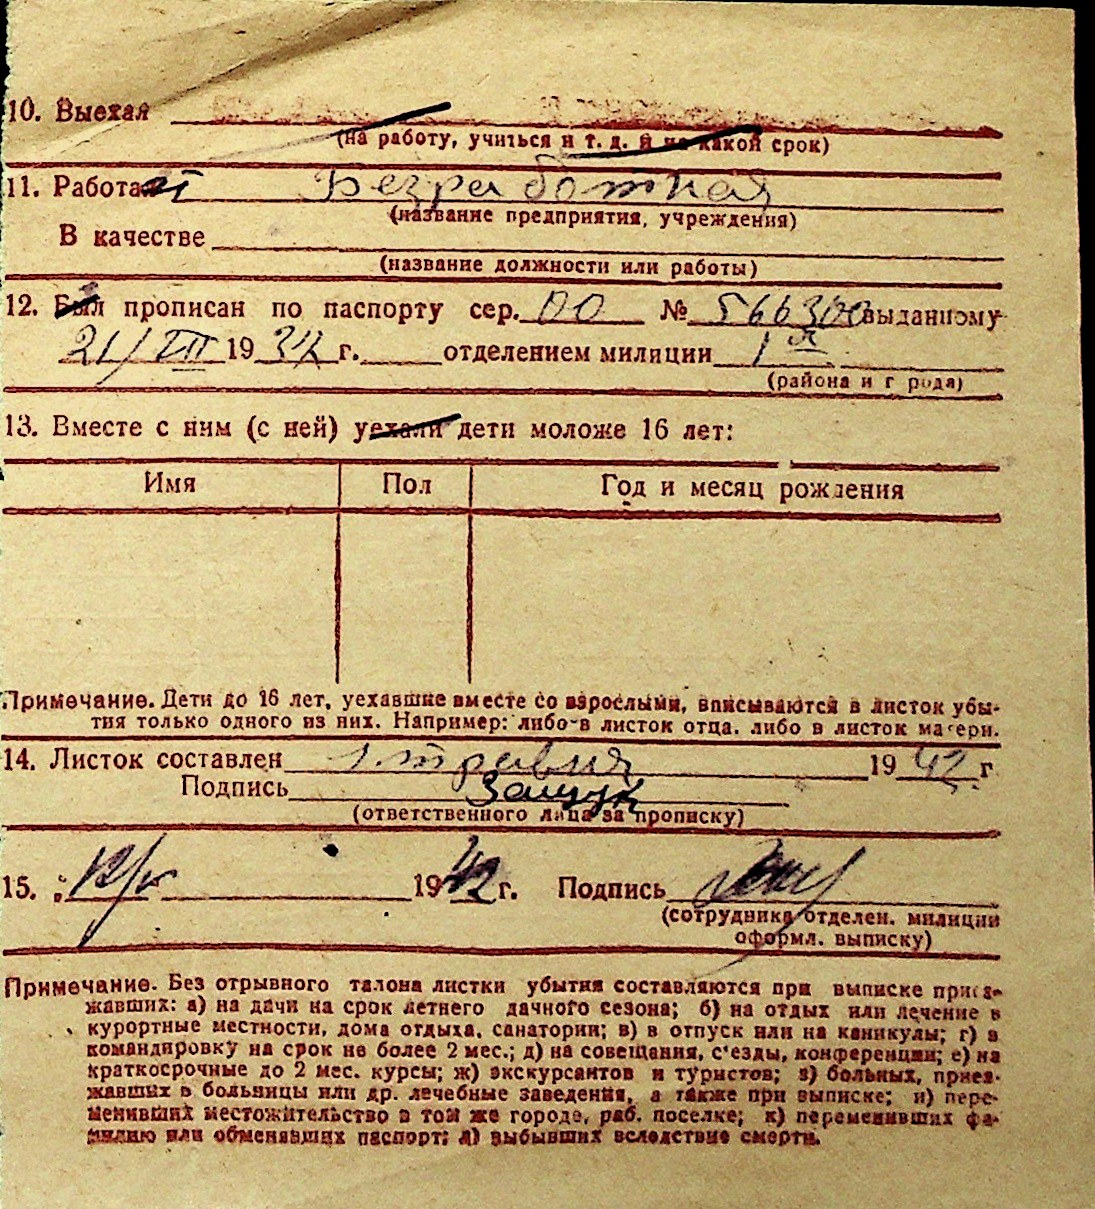 10. Выехал
(на работу, учиться и т. д. и на какой срок)
11. Работает Безработная
(название предприятия, учреждения)
В качестве
(название должности или работы)
12. Был прописан по паспорту сер. ОО № 566300 выданному
21/VIII 1934 г. отделением милиции 1й
(района и города)
13. Вместе с ним (с ней) уехали дети моложе 16 лет:
Имя Пол Год и месяц рождения
Примечание. Дети до 16 лет, уехавшие вместе со взрослыми, вписываются в листок убы-
тия только одного из них. Например: либо в листок отца, либо в листок матери.
14. Листок составлен 1. травня 1942 г.
Подпись Защук
(ответственного лица за прописку)
15. 1942 г. Подпись
(сотрудника отделен. милиции
оформл. выписку)
Примечание. Без отрывного талона листки убытия составляются при выписке приез-
жавших: а) на дачи на срок летнего дачного сезона; б) на отдых или лечение в
курортные местности, дома отдыха, санатории; в) в отпуск или на каникулы; г) в
командировку на срок не более 2 мес.; д) на совещания, с'езды, конференции; е) на
краткосрочные до 2 мес. курсы; ж) экскурсантов и туристов; з) больных, приез-
жавших в больницы или др. лечебные заведения, а также при выписке; и) пере-
менивших местожительство в том же городе, раб. поселке; к) переменивших фа-
милию или обменявших паспорт; л) выбывших вследствие смерти.